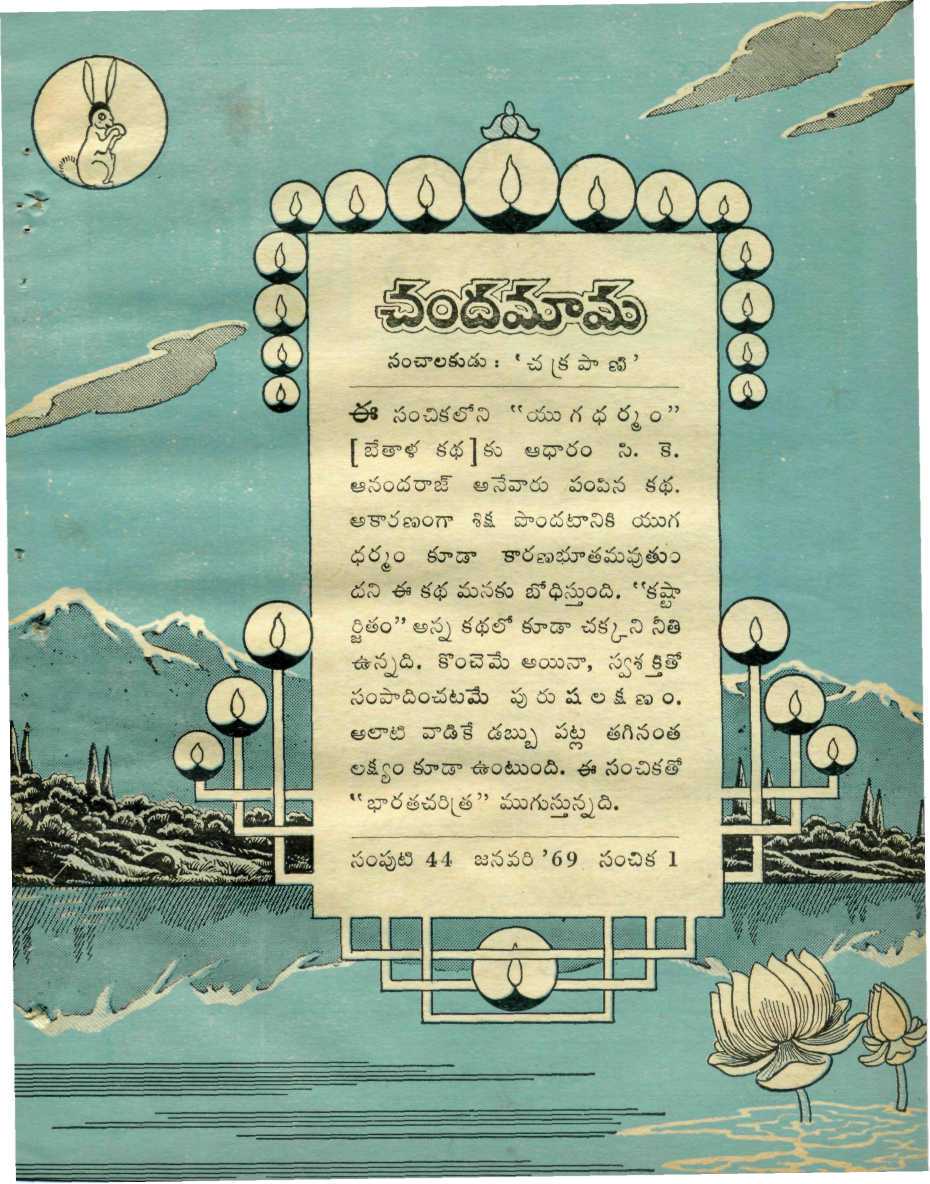 చందమామ
సంచాలకుడు : ‘చక్రపాణి’
ఈ సంచికలోని “యుగధర్మం”
[బేతాళ కథ]కు ఆధారం సి. కె.
ఆనందరాజ్ అనేవారు పంపిన కథ.
అకారణంగా శిక్ష పొందటానికి యుగ
ధర్మం కూడా కారణభూతమవుతుం
దని ఈ కథ మనకు బోధిస్తుంది. “కష్టా
ర్జితం” అన్న కథలో కూడా చక్కని నీతి
ఉన్నది. కొంచెమే అయినా, స్వశక్తితో
సంపాదించటమే పురుషలక్షణం.
అలాటి వాడికే డబ్బు పట్ల తగినంత
లక్ష్యం కూడా ఉంటుంది. ఈ సంచికతో
“భారతచరిత్ర” ముగుస్తున్నది.
సంపుటి 44 జనవరి ’69 సంచిక 1